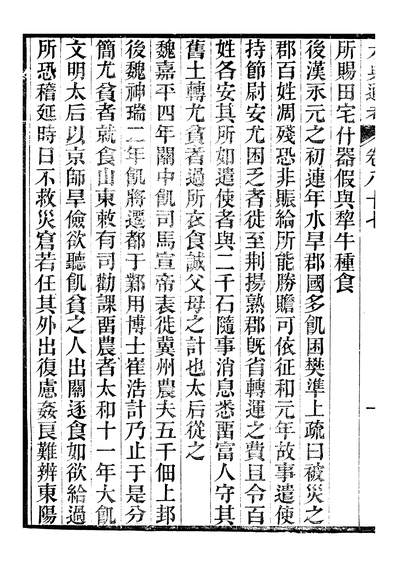 卷八十七
所賜田宅什器假與犂牛種食
後漢永元之初連年水旱郡國多飢困樊準上疏曰被災之
郡百姓凋殘恐非賑給所能勝贍可依征和元年故事遣使
持節尉安尤困乏者徙至荆揚熟郡旣省轉運之費且令百
姓各安其所如遣使者與二千石隨事消息悉畱富人守其
舊土轉尤貧者過所衣食誠父母之計也太后從之
魏嘉平四年關中飢司馬宣帝表徙冀州農夫五千佃上邽
後魏神瑞二年飢將遷都于鄴用博士崔浩計乃止于是分
簡尤貧者就食山東敕有司勸課畱農者太和十一年大飢
文明太后以京師旱儉欲聽飢貧之人出關逐食如欲給過
所恐稽延時日不救災窘若任其外出復慮姦良難辨東陽